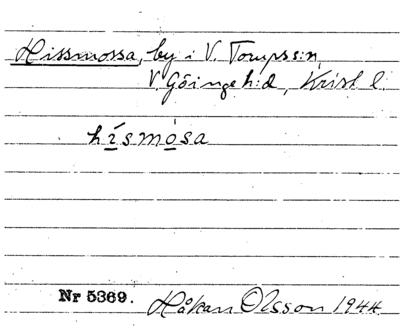 Hissmossa, by i V. Torups:n,
V. Göinge h:d, Krist l.
hísmósa
Nr 5369. Håkan Olsson 1944